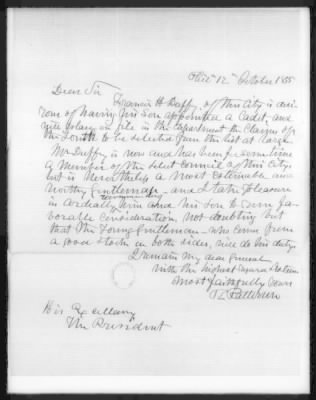 12th October 185
Dear Sir
Francis H Duffy of this City is desi-
rous of having his son appointed a Cadet, and
will place on file in the department the Claims of
the youth to be selected from the list at large
Mr Duffy is now and has been for some time
a Member of the Select Council of this City
but is nevertheless a most estimable and
worthy Gentleman and I take pleasure
in cordially recommending him and his son to Your fa-
vorable consideration, not doubting but
that the Young Gentleman who comes from
a good stock on both sides, will do his duty
I remain my dear General
with the highest regard & esteem
most faithfully Yours
R Patterson
His Excellency
The President